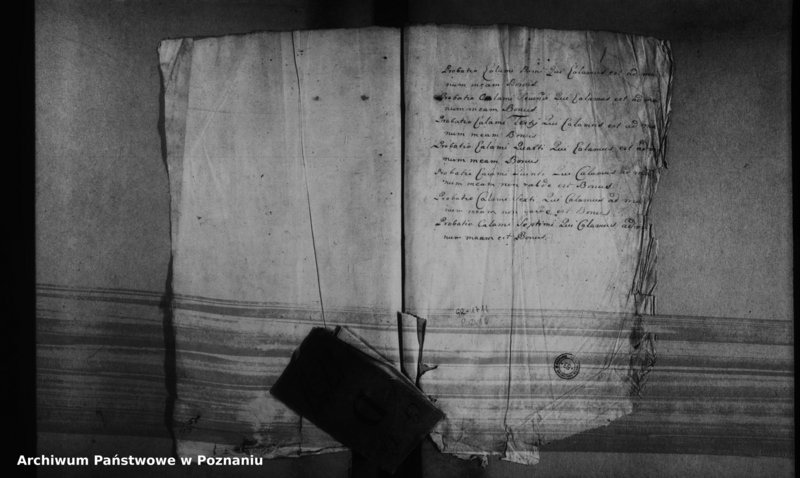 Probatio Calami Primi Qui Calamus est ad ma
num meam Bonus
Probatio Calami Secundi Qui Calamus est ad ma
num meam Bonus
Probatio Calami Tertij Qui Calamus est ad ma
num meam Bonus
Probatio Calami Quarti Qui Calamus est ad ma
num meam Bonus
Probatio Calami Quinti Qui Calamus ad ma
num meam non valde est Bonus
Probatio Calami Sexti Qui Calamus ad ma
num meam non valde est Bonus
Probatio Calami Septimi Qui Calamus ad ma
num meam est Bonus
Archiwum Państwowe w Poznaniu